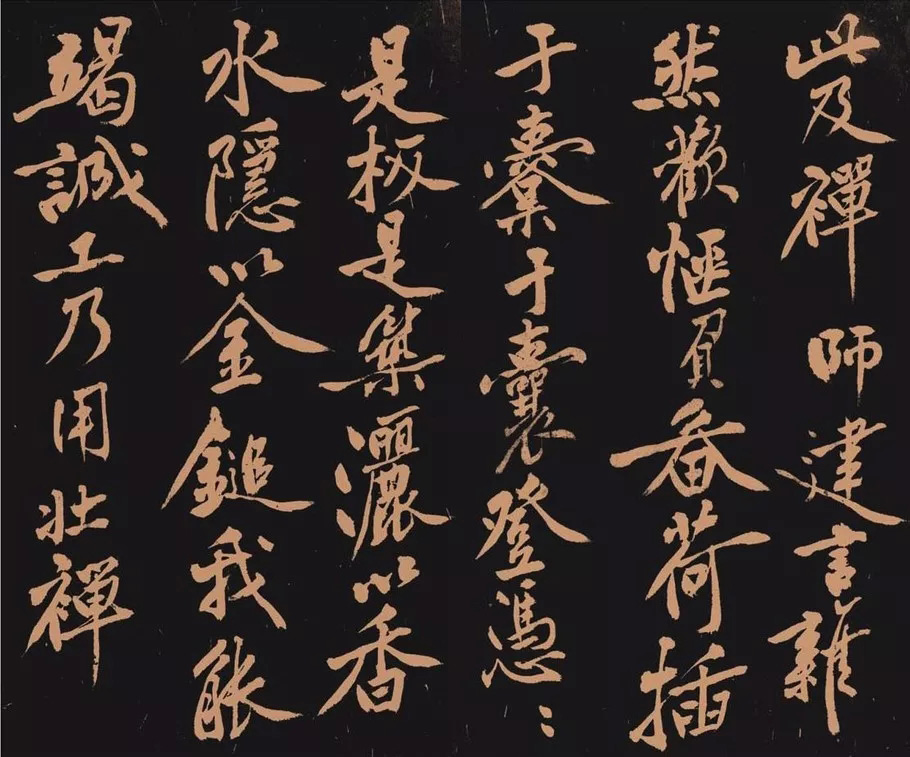 此及禪師建言雜
然歡愜負畚荷插
于橐于囊登憑〻
是板是築灑以香
水隱以金鎚我能
竭誠工乃用壯禪